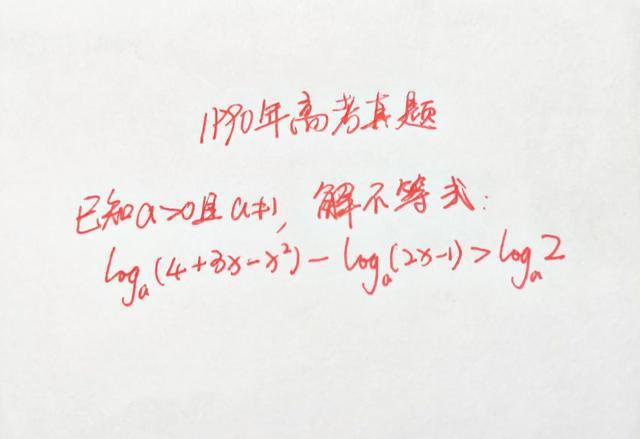 1990年高考真题
已知a>0且a≠1,解不等式:
logₐ(4+3x-x²)-logₐ(2x-1)>logₐ2